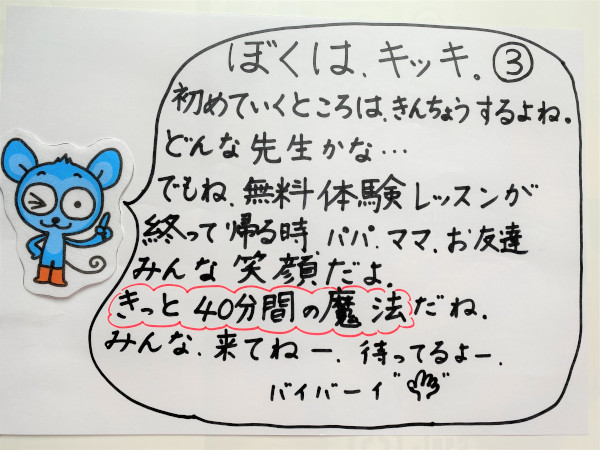 ぼくは、キッキ。③
初めていくところは、きんちょうするよね。
どんな先生かな…
でもね、無料体験レッスンが
終って帰る時 パパ、ママ、お友達
みんな笑顔だよ。
きっと40分間の魔法だね。
みんな、来てねー、待ってるよー、
バイバーイ